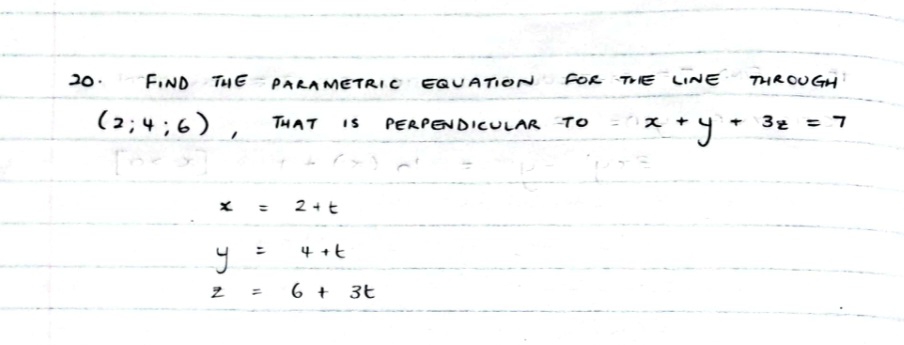 20. FIND THE PARAMETRIC EQUATION FOR THE LINE THROUGH
(2;4;6), THAT IS PERPENDICULAR TO x + y + 3z = 7
x = 2+t
y = 4+t
z = 6 + 3t